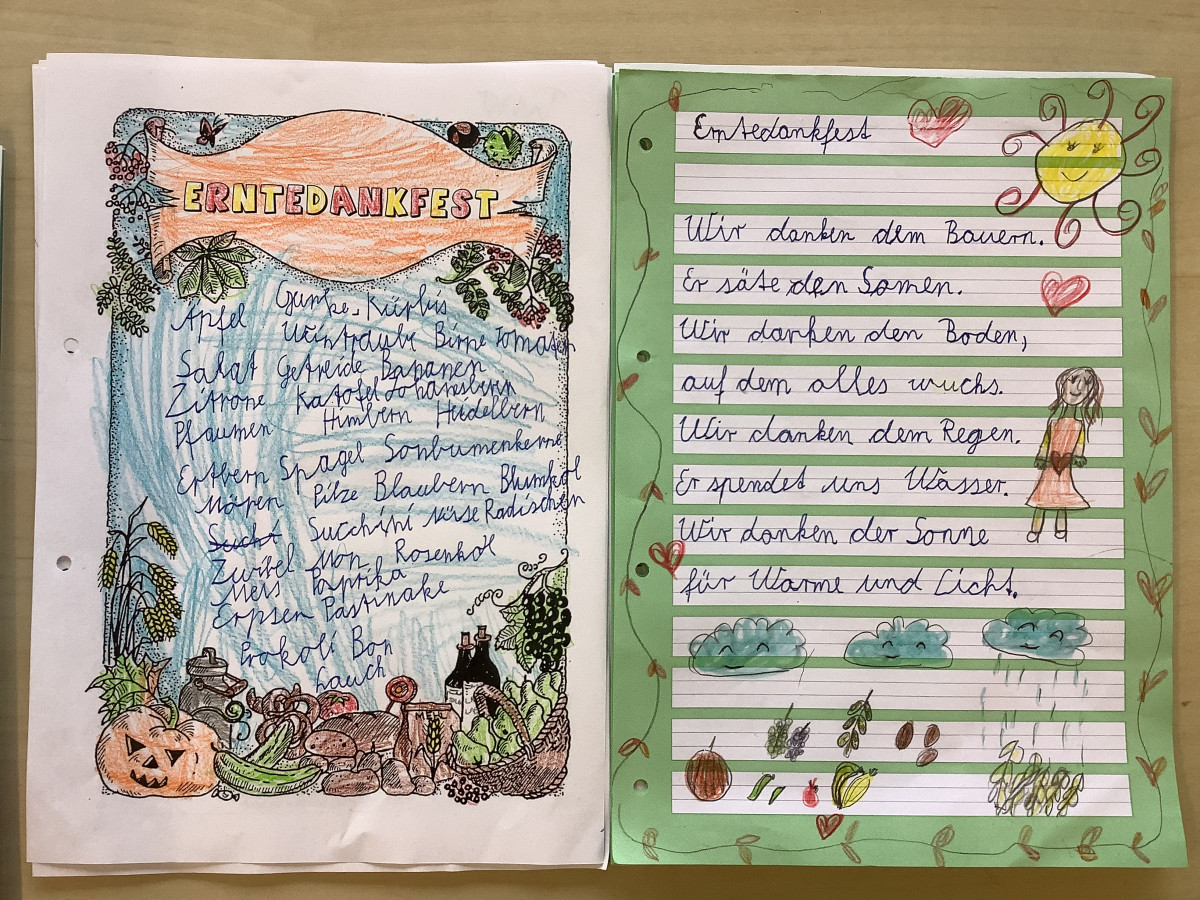 ERNTEDANKFEST
Apfel Gurke Kürbis
Weintraube Birne Tomaten
Salat Getreide Bananen
Zitrone Katofel Johansbern
Pflaumen Himbern Heidelbern
Ertbern Spagel Sonbumenkerne
Mören Pilze Blaubern Blumkol
Succhini Radischen
Zwibel Rosenkol
Meis Paprika
Erpsen Pastinake
Prokoli Bon
Lauch
Erntedankfest
Wir danken dem Bauern.
Er säte den Samen.
Wir danken den Boden,
auf dem alles wuchs.
Wir danken dem Regen.
Er spendet uns Wasser.
Wir danken der Sonne
für Wärme und Licht.